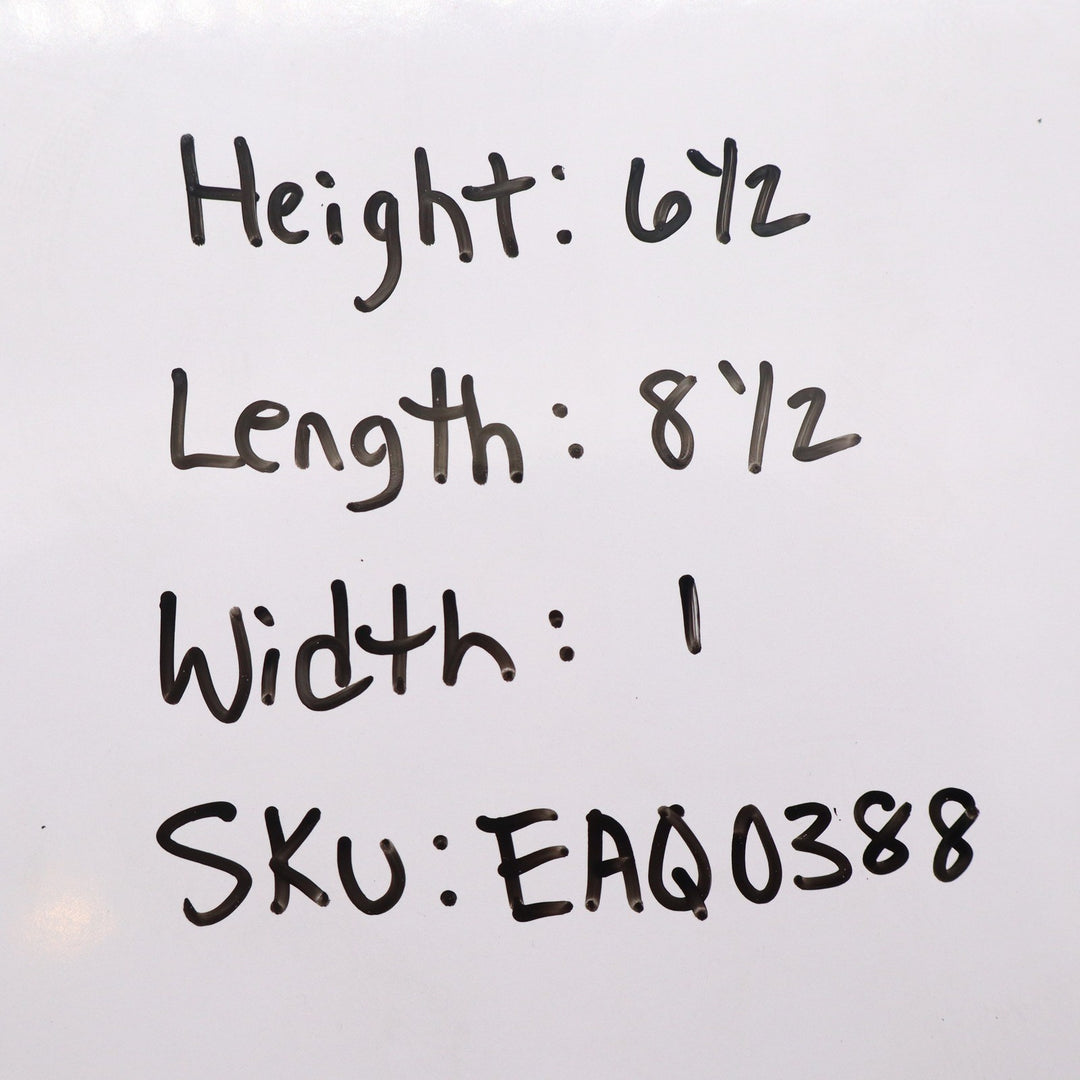 Height: 6 1/2
Length: 8 1/2
Width: 1
SKU: EAQ0388